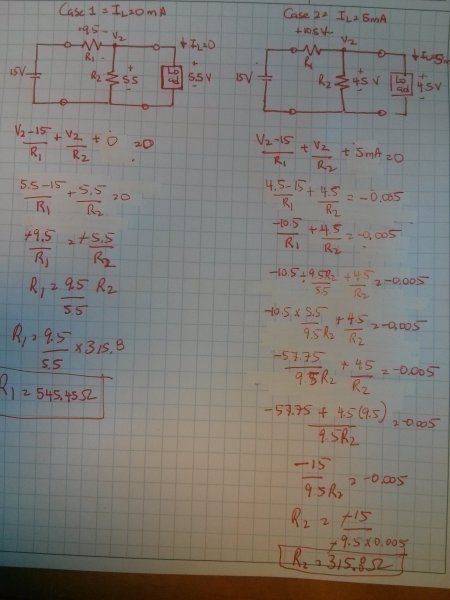 Case 1 = IL=0mA
+9.5-
V2
↓IL=0
R1
15V
R2
+
5.5
-
Load
+
5.5V
-
V2-15/R1 + V2/R2 + 0 = 0
5.5-15/R1 + 5.5/R2 = 0
+9.5/R1 = +5.5/R2
R1 = 9.5/5.5 R2
R1 = 9.5/5.5 × 315.8
R1 = 545.45Ω
Case 2 = IL=5mA
+10.5V-
V2
R1
15V
R2
+
4.5V
-
Load
+
4.5V
-
V2-15/R1 + V2/R2 + 5mA = 0
4.5-15/R1 + 4.5/R2 = -0.005
-10.5/R1 + 4.5/R2 = -0.005
-10.5 ÷ 9.5R2/5.5 + 4.5/R2 = -0.005
-10.5 × 5.5/9.5R2 + 4.5/R2 = -0.005
-57.75/9.5R2 + 4.5/R2 = -0.005
-57.75 + 4.5(9.5)/9.5R2 = -0.005
-15/9.5R2 = -0.005
R2 = +15/+9.5×0.005
R2 = 315.8Ω